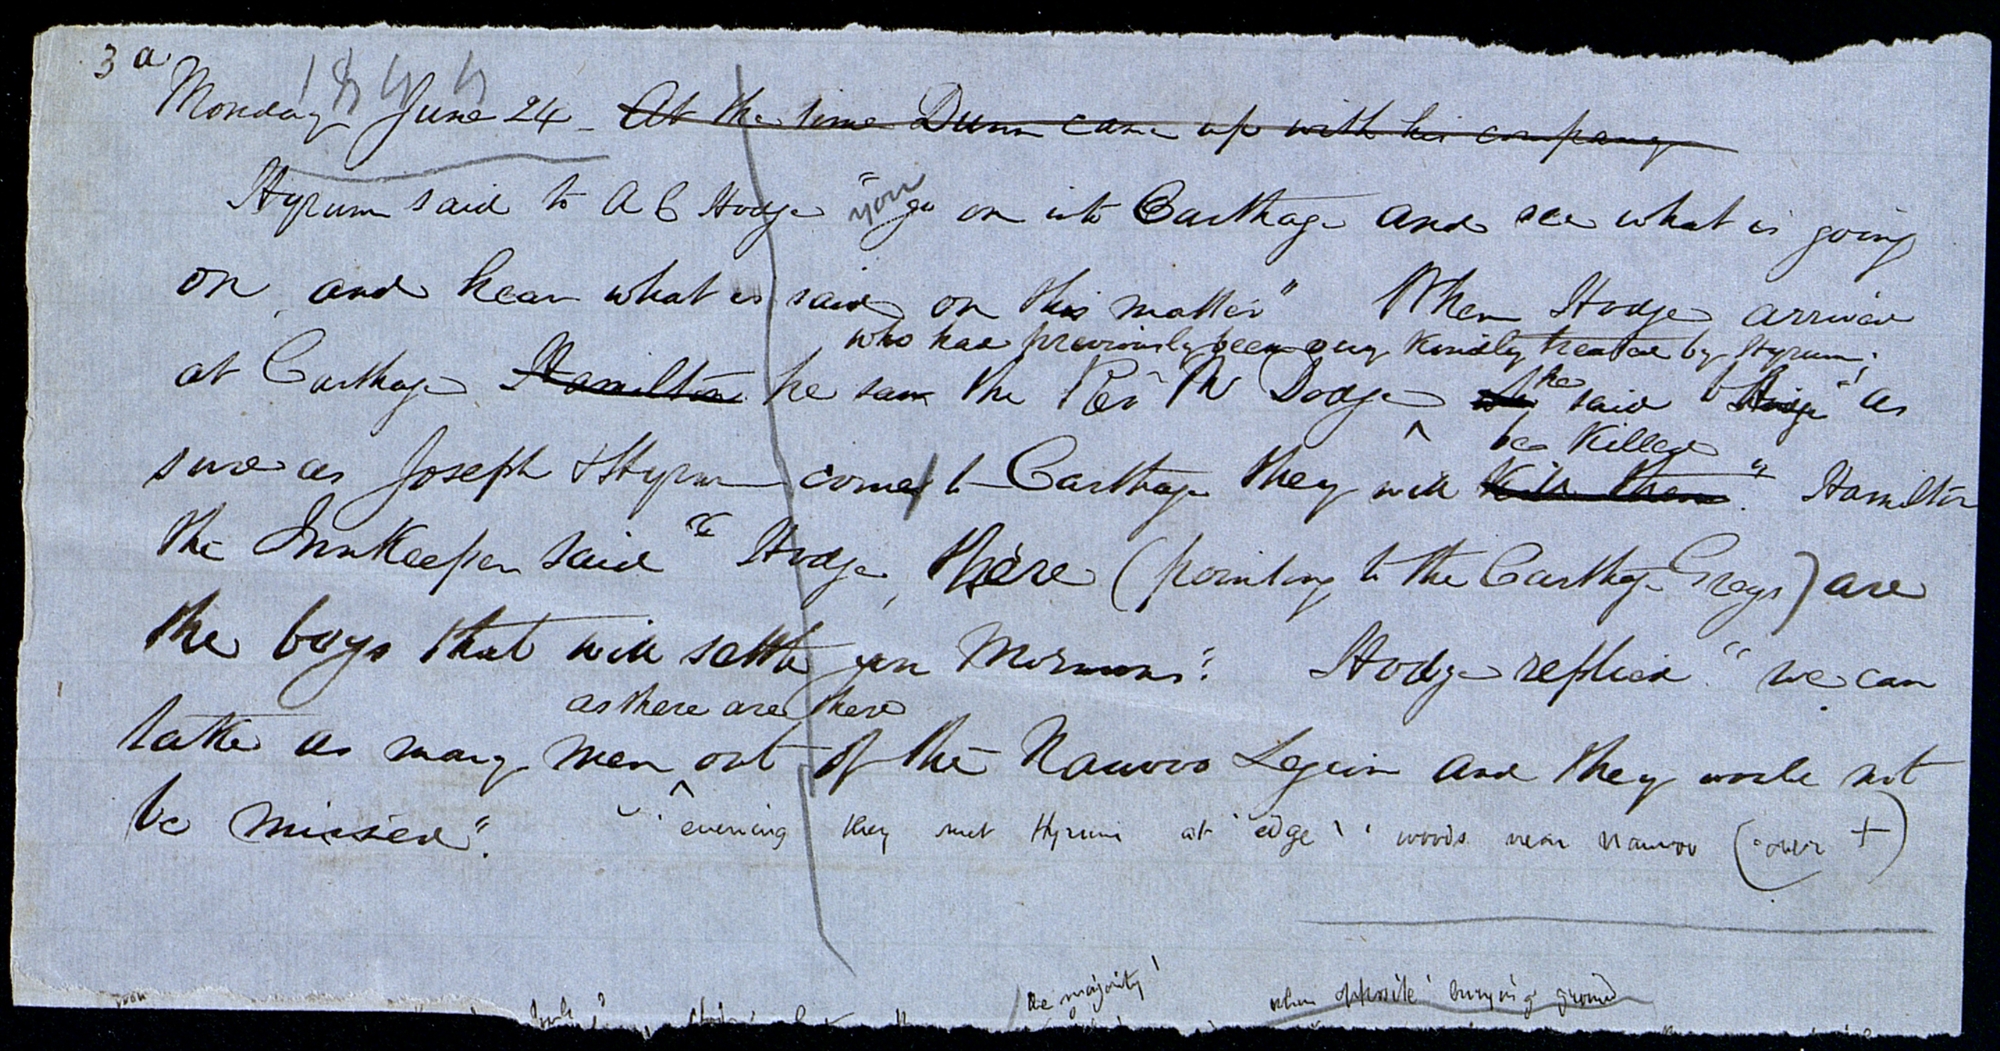 3 a
1844
Monday June 24 - At the time Dunn came up with his company
Hyrum said to A C Hodge "you go on into Carthage and see what is going
on, and hear what is said on this matter" When Hodge arrived
who had previously been very kindly treated by Hyrum;
at Carthage Hamilton he saw the Rev Mr Dodge he said to Hodge "as
be killed
sure as Joseph & Hyrum come to Carthage they will kill them". Hamilton
the Innkeeper said "Hodge, there (pointing to the Carthage Greys) are
the boys that will settle you Mormons". Hodge replied "we can
as there are there
take as many men out of the Nauvoo Legion and they would not
be missed".
evening they met Hyrum at edge woods near Nauvoo (over +)
the majority
when opposite burying ground